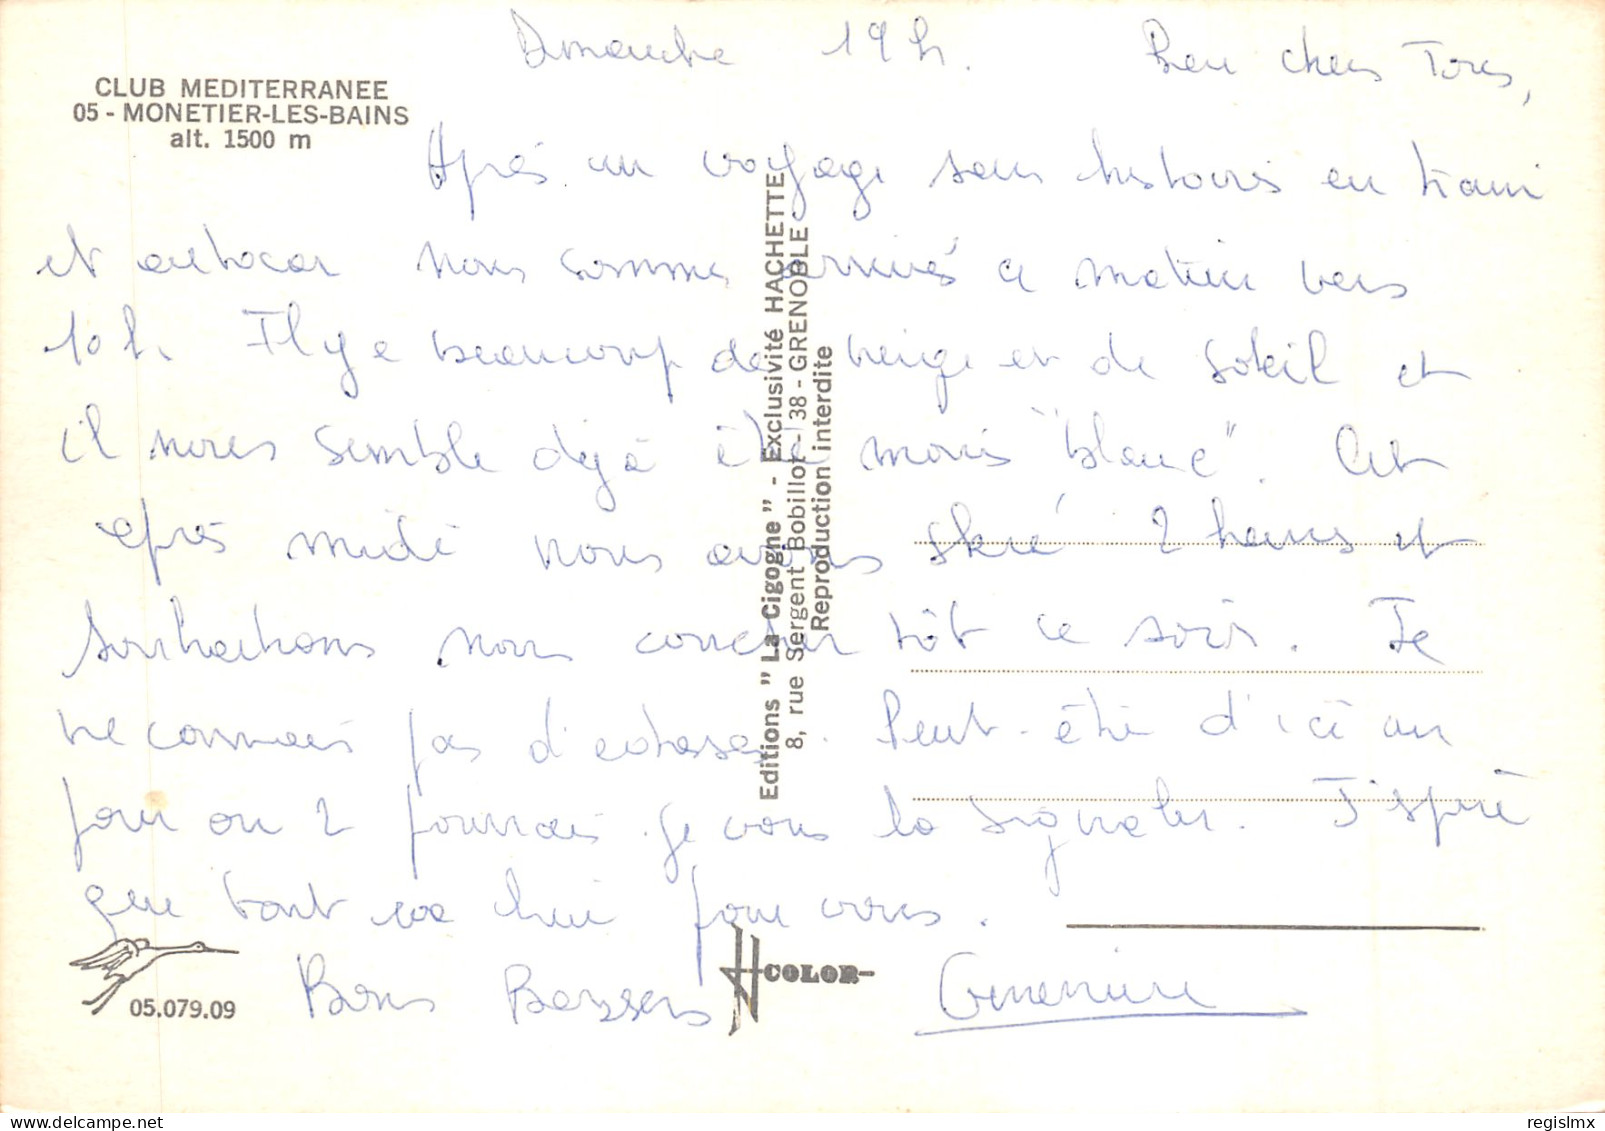 CLUB MEDITERRANEE
05 - MONETIER-LES-BAINS
alt. 1500 m
Dimanche 19 h. Bien chers Tous,
Après un voyage sans histoires en train
et autocar nous sommes arrivés ce matin vers
10 h. Il y a beaucoup de neige et de soleil et
il nous semble déjà être moins "blanc". Cet
après midi nous avons skié 2 heures et
souhaitons nous coucher tôt ce soir. Je
ne connais pas d'adresse. Peut-être d'ici un
jour ou 2 pourrai je vous la signaler. J'espère
que tout va bien pour vous.
Bons Baisers Geneviève
Editions " La Cigogne " - Exclusivité HACHETTE
8, rue Sergent Bobillot - 38 - GRENOBLE
Reproduction interdite
COLOR
05.079.09
regislmx